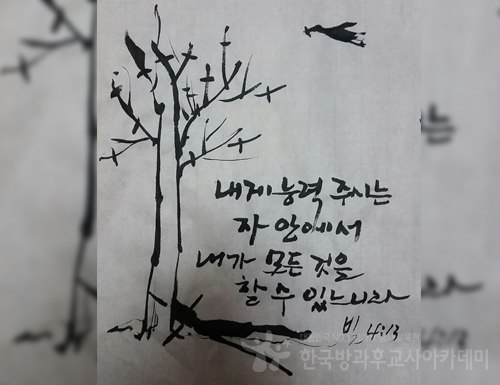 내게 능력 주시는
자 안에서
내가 모든 것을
할 수 있느니라
빌 4:13
한국방과후교사아카데미